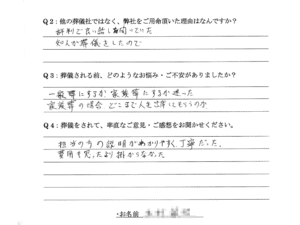 Q2：他の葬儀社ではなく、弊社をご用命頂いた理由はなんですか？
評判で良い話しを聞いていた
知人が葬儀をしたので
Q3：葬儀される前、どのようなお悩み・ご不安がありましたか？
一般葬にするか家族葬にするか迷った
家族葬の場合どこまで人を呼にもうのか
Q4：葬儀をされて、率直なご意見・ご感想をお聞かせください。
担当の方の説明がわかりやすく、丁寧だった。
費用も思ったより掛からなかった
・お名前